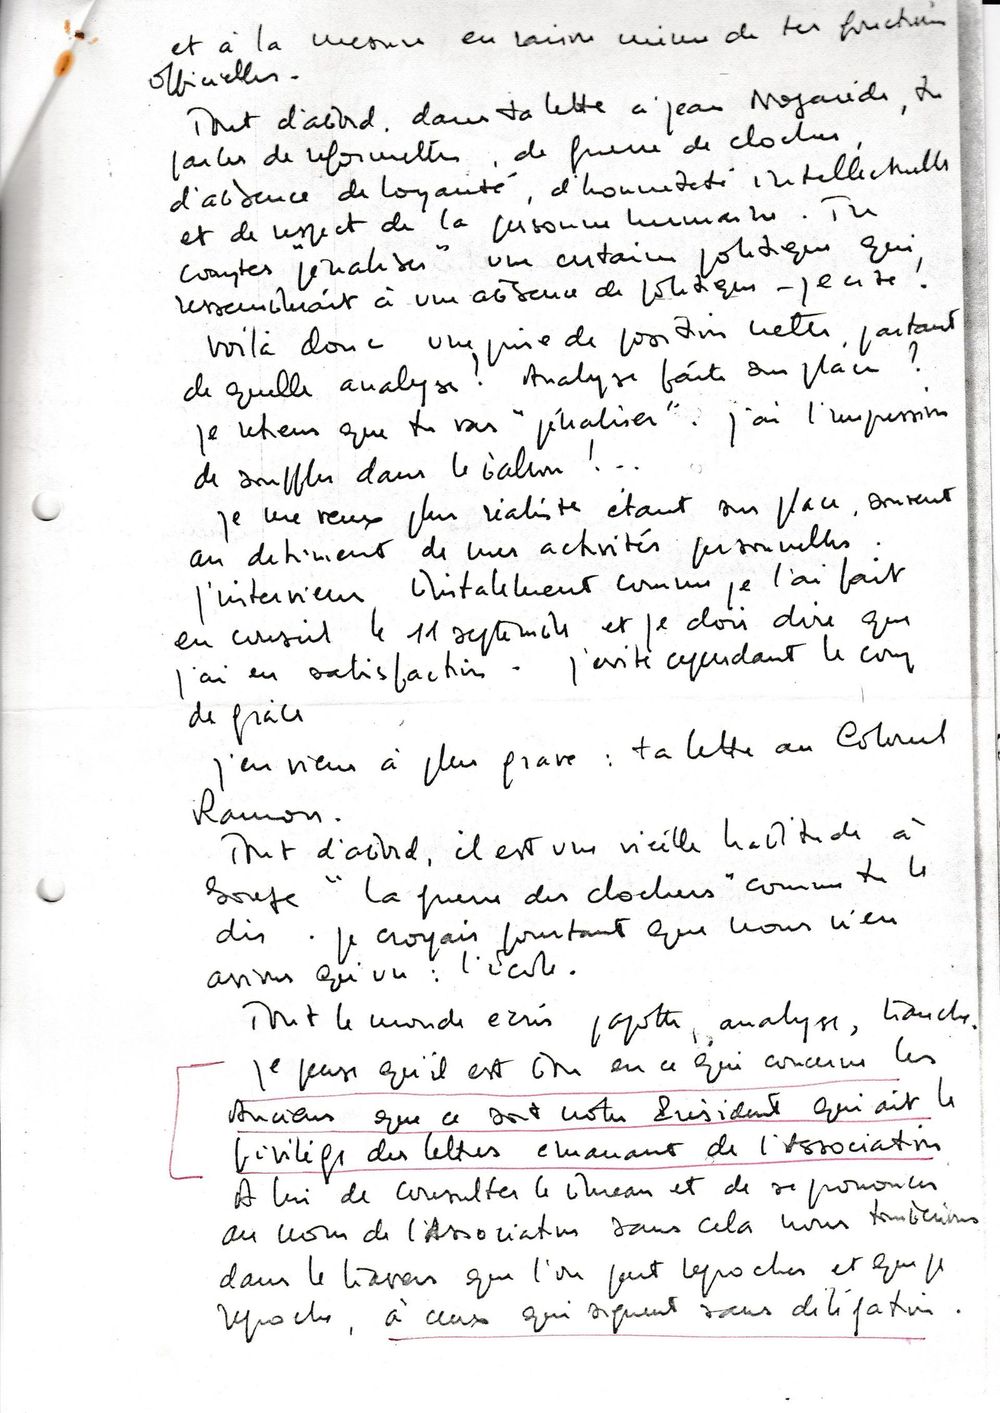 et à la mesure en raison même de tes fonctions
officielles.
Tout d'abord, dans ta lettre à Jean Nogarède, tu
parles de réformettes, de guerre de clocher,
d'absence de loyauté, d'honnêteté intellectuelle
et de respect de la personne humaine. Tu
comptes "pénaliser" une certaine politique qui
ressemblerait à une absence de politique - je cite !
Voilà donc une prise de position nette, partant
de quelle analyse ! Analyse faite sur place ?
je retiens que tu vas "pénaliser". j'ai l'impression
de souffler dans le ballon !...
je me veux plus réaliste étant sur place, souvent
au détriment de mes activités personnelles.
j'interviens brutalement comme je l'ai fait
en conseil le 11 septembre et je dois dire que
j'ai eu satisfaction. j'évite cependant le coup
de grâce
j'en viens à plus grave : ta lettre au Colonel
Ramon.
Tout d'abord, il est une vieille habitude à
Sorèze "la guerre des clochers" comme tu le
dis. je croyais pourtant que nous n'en
avions qu'un : l'école.
Tout le monde écris, papote, analyse, tranche.
je pense qu'il est bon en ce qui concerne les
Anciens que ce soit notre Président qui ait le
privilège des lettres émanant de l'Association
A lui de consulter le bureau et de se prononcer
au nom de l'Association sans cela nous tomberions
dans le travers que l'on peut reprocher et que je
reproche, à ceux qui signent sans délégation.